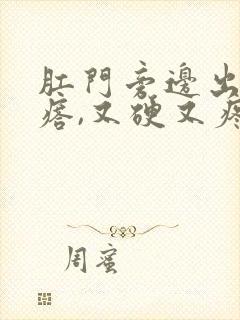 肛門旁邊出
瘩,又硬又疼
周蜜